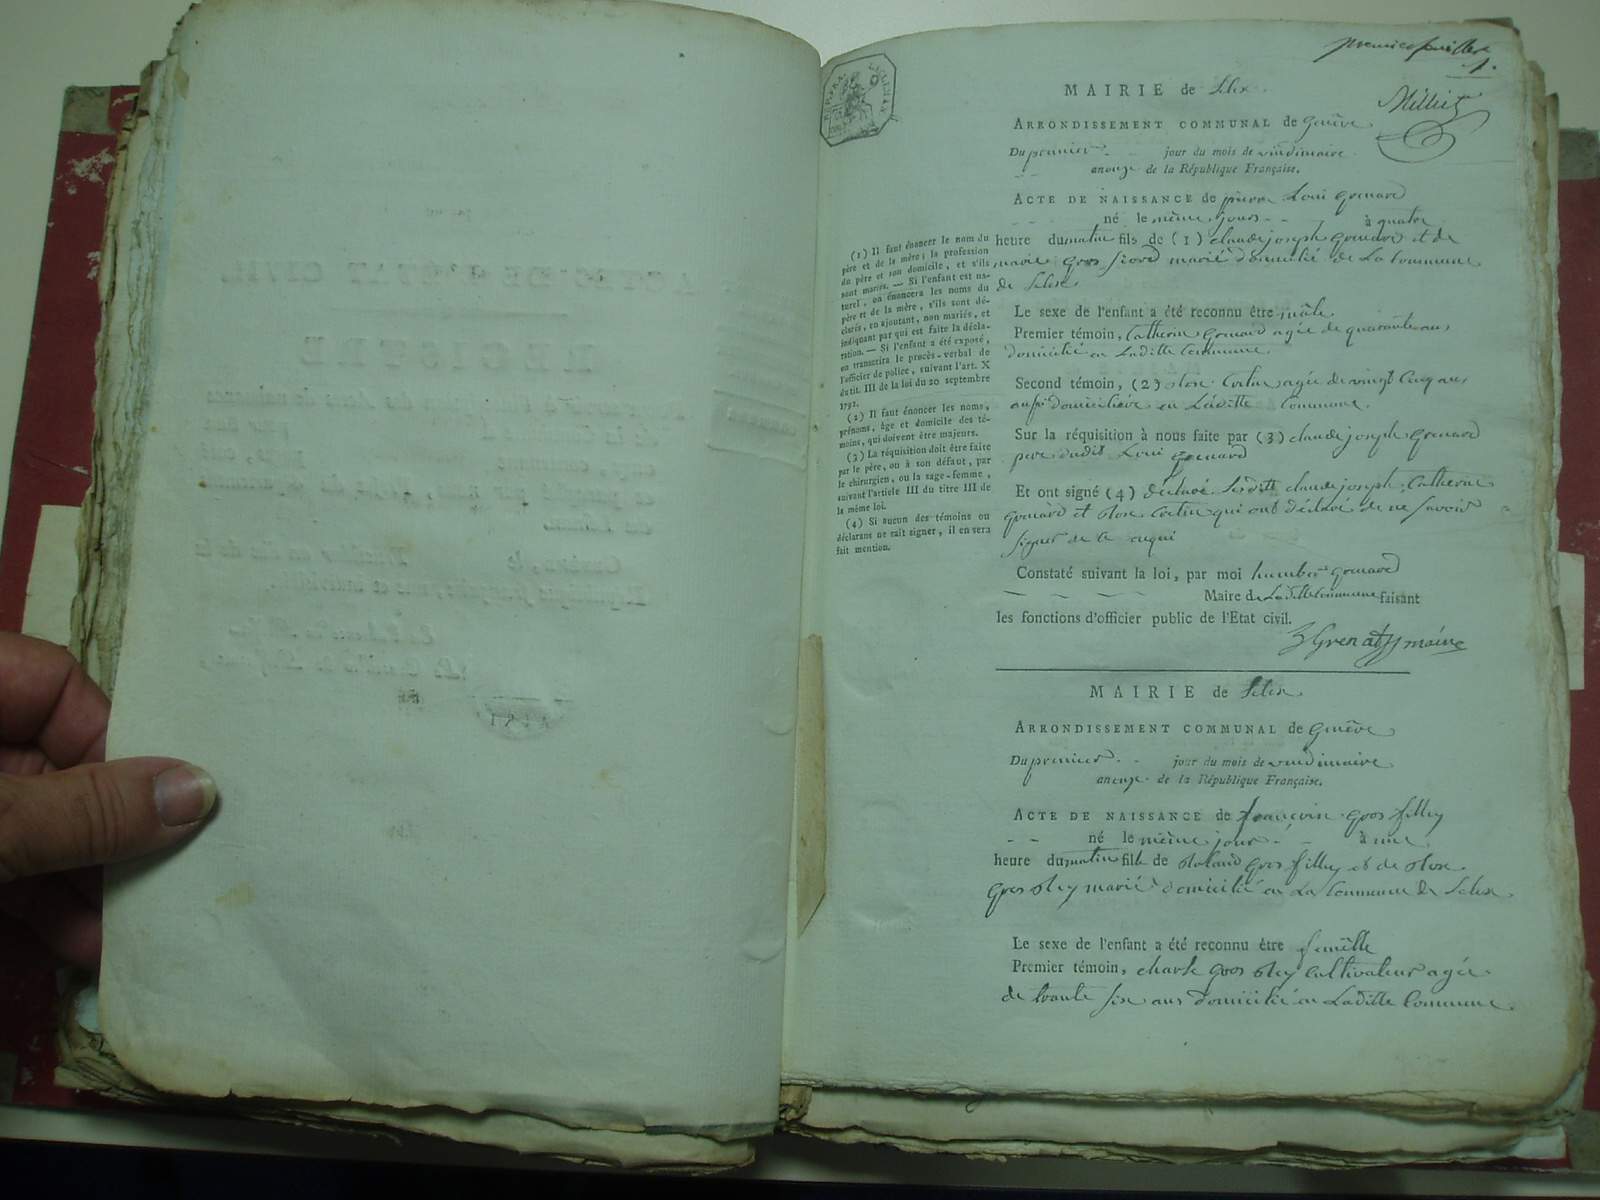 premier feuillet
1.
MAIRIE de Selex
ARRONDISSEMENT COMMUNAL de Genève
Du premier jour du mois de vindimaire
an onze de la République Française.
ACTE DE NAISSANCE de pierre Loui grenard
né le même jours à quatre
heure du matin fils de (1) claude joseph grenard et de
marie gros marié domicilié de La Commune
de Selex
Le sexe de l'enfant a été reconnu être mâle
Premier témoin, Catherine grenard agée de quarante ans
domicilié en Laditte Commune.
Second témoin, (2) agée de vingt cinq ans
domiciliée en Laditte Commune.
Sur la réquisition à nous faite par (3) claude joseph grenard
pere dudit Loui grenard
Et ont signé (4) déclaré claude joseph Catherine
grenard et qui ont déclaré de ne savoir
signer de ce
Constaté suivant la loi, par moi humbert grenard
Maire de Laditte Commune faisant
les fonctions d'officier public de l'Etat civil.
Grenat maire
(1) Il faut énoncer le nom du
père et de la mère; la profession
du père et son domicile, et s'ils
sont mariés. — Si l'enfant est na-
turel, on énoncera les noms du
père et de la mère, s'ils sont dé-
clarés, en ajoutant, non mariés, et
indiquant par qui est faite la décla-
ration. — Si l'enfant a été exposé,
on transcrira le procès-verbal de
l'officier de police, suivant l'art. X
du tit. III de la loi du 20 septembre
1792.
(2) Il faut énoncer les noms,
prénoms, âge et domicile des té-
moins, qui doivent être majeurs.
(3) La réquisition doit être faite
par le père, ou à son défaut, par
le chirurgien, ou la sage-femme,
suivant l'article III du titre III de
la même loi.
(4) Si aucun des témoins ou
déclarans ne sait signer, il en sera
fait mention.
MAIRIE de Selex
ARRONDISSEMENT COMMUNAL de Genève
Du premier jour du mois de vindimiaire
an onze de la République Française.
ACTE DE NAISSANCE de françoise gros filley
né le même jour à une
heure du matin fille de Roland gros filley et de
gros marié domicilié en La Commune de Selex
Le sexe de l'enfant a été reconnu être femelle
Premier témoin, charle gros cultivateur agée
de trante six ans domicilié en Laditte Commune